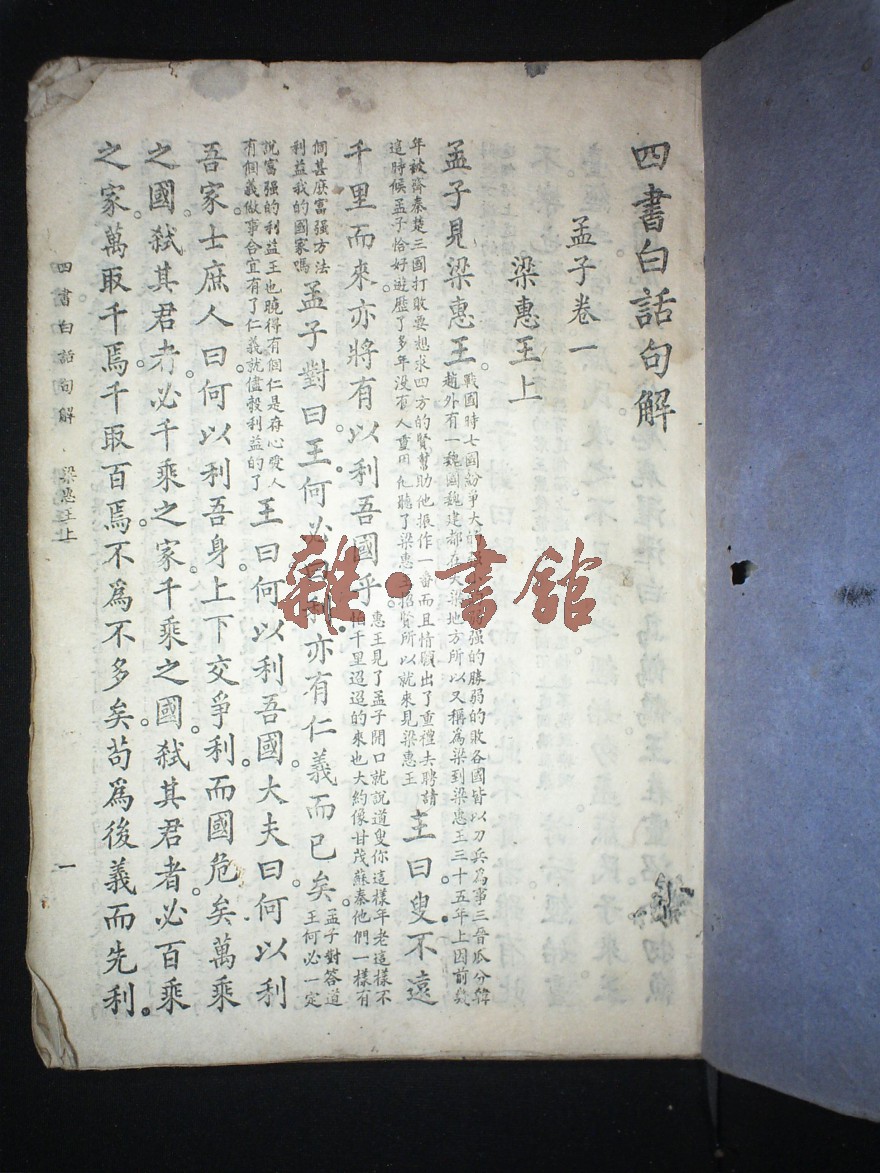 四書白話句解
孟子卷一
梁惠王上
孟子見梁惠王。
戰國時七國紛爭大的
強的勝弱的敗各國皆以刀兵為事三晉瓜分韓
趙外有一魏國魏建都在大梁地方所以又稱為梁到梁惠王三十五年上因前幾
年被齊秦楚三國打敗要想求四方的賢幫助他振作一番而且情願出了重禮去聘請
這時候孟子恰好遊歷了多年沒有人重用他聽了梁惠王招賢所以就來見梁惠王
王曰叟不遠
千里而來。亦將有以利吾國乎。
惠王見了孟子開口就說道叟你這樣年老這樣不
怕千里迢迢的來也大約像甘茂蘇秦他們一樣有
個甚麽富強方法
利益我的國家嗎
孟子對曰。王何必曰利。亦有仁義而已矣。
孟子對答道
王何必一定
說富強的利益王也曉得有個仁是存心愛人
有個義做事合宜有了仁義就儘彀利益的了
王曰何以利吾國。大夫曰何以利
吾家。士庶人曰何以利吾身。上下交爭利。而國危矣。萬乘
之國。弒其君者。必千乘之家。千乘之國。弒其君者。必百乘
之家。萬取千焉。千取百焉。不為不多矣。苟為後義而先利。
四書白話句解
梁惠王上
一
雜·書館